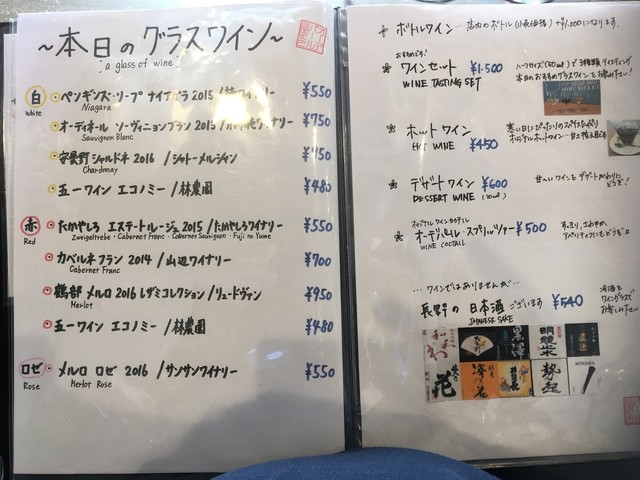 ~本日のグラスワイン~
a glass of wine
白 White
ペンギンズ・リープ ナイアガラ 2015 ¥550
Niagara
オーディネール ソーヴィニョンブラン 2015 ¥750
Sauvignon Blanc
安曇野 シャルドネ 2016 /シャトー・メルシャン ¥750
Chardonnay
五一ワイン エコノミー /林農園 ¥480
赤 Red
たかやしろ エステートルージュ 2015 /たかやしろワイナリー ¥550
Zweigeltrebe・Cabernet Franc・Cabernet Sauvignon・Fuji no Yume
カベルネフラン 2014 /山辺ワイナリー ¥700
Cabernet Franc
鶴部 メルロ 2016 レザミコレクション /リュードヴァン ¥950
Merlot
五一ワイン エコノミー /林農園 ¥480
ロゼ Rose
メルロ ロゼ 2016 /サンサンワイナリー ¥550
Merlot Rose
ボトルワイン…店内のボトル(小売価格)+¥1,000になります。
おすすめです!
ワインセット ¥1,500
WINE TASTING SET
ハーフサイズ(50ml)で3種類テイスティング
本日のおすすめグラスワインをお楽しみ下さい!
ホットワイン ¥450
HOT WINE
寒い日にぴったりのスパイスたっぷり
デザートワイン ¥600
DESSERT WINE
甘〜いワインをデザートがわりにどうぞ!
オリジナルワインカクテル
オーデパール・スプリッツァー ¥500
WINE COCTAIL
すっきり、さわやか、
アペリティフにもどうぞ
…ワインではありませんが…
長野の日本酒ございます ¥540
JAPANESE SAKE
冷酒を
ワイングラスで
お楽しみ下さい